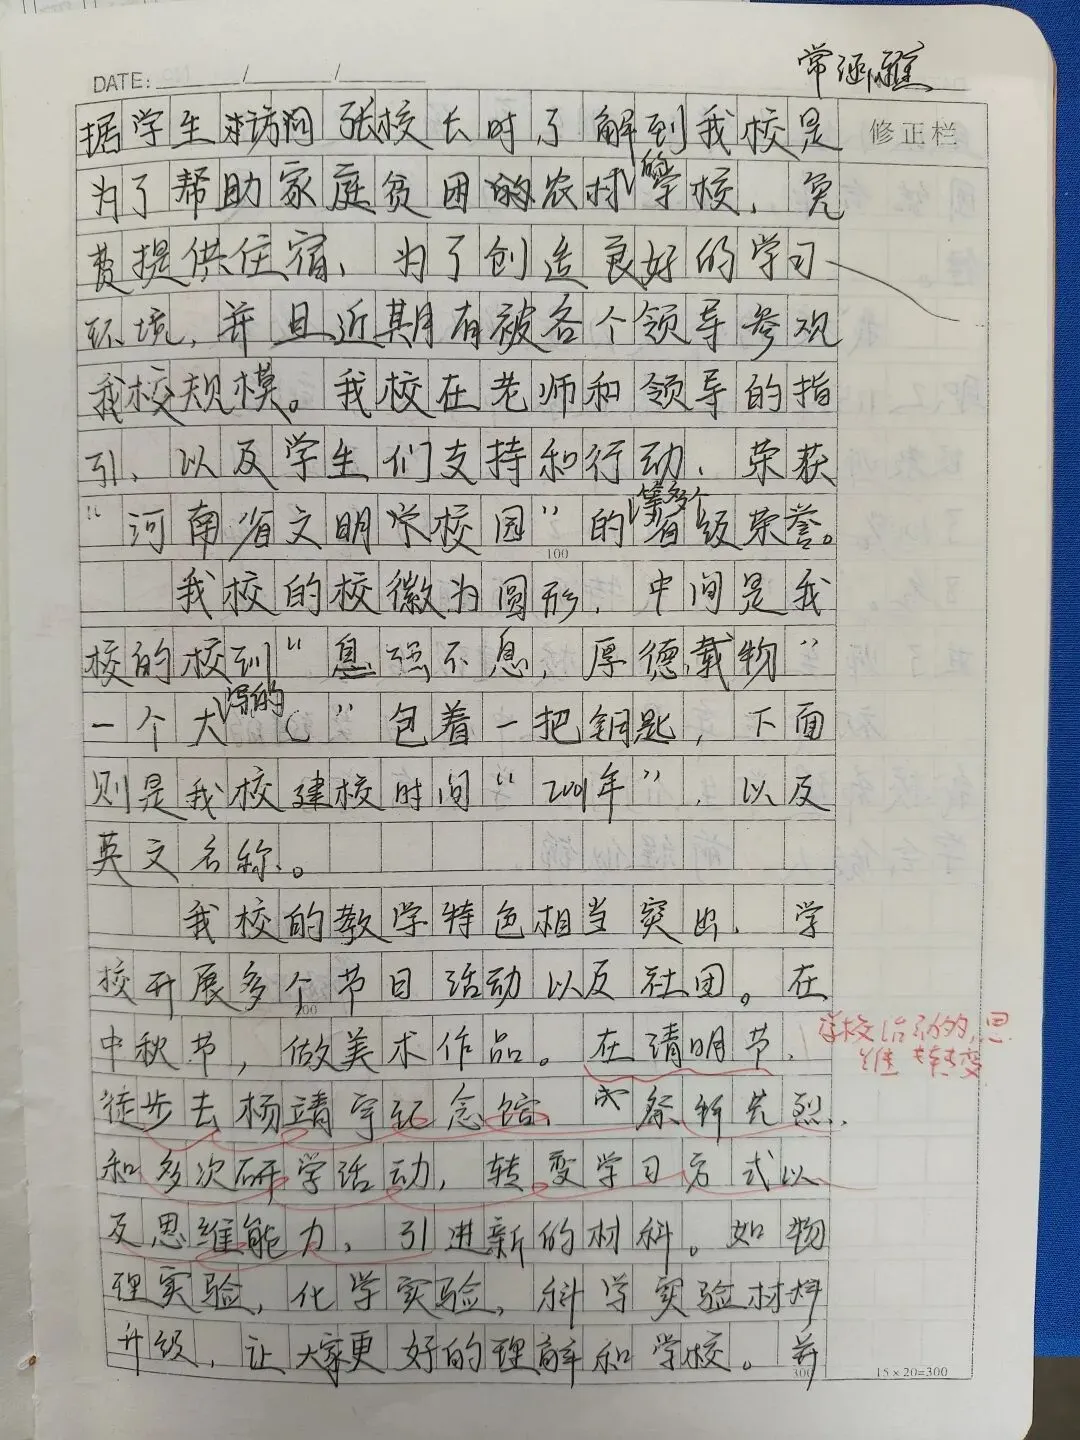 常涵雅
DATE: / /
修正栏
据学生来访问张校长时了解到我校是
为了帮助家庭贫困的农村的学校，免
费提供住宿，为了创造良好的学习
环境，并且近期有被各个领导参观
我校规模。我校在老师和领导的指
引，以及学生们支持和行动，荣获
“河南省文明学校园”的等多个省级荣誉。
100
我校的校徽为圆形，中间是我
校的校训“息强不息，厚德载物”
一个大写的“C”包着一把钥匙，下面
则是我校建校时间“2001年”，以及
英文名称。
我校的教学特色相当突出，学
校开展多个节日活动以及社团。在
200
中秋节，做美术作品。在清明节，
学校活动的，思
维转变
徒步去杨靖宇纪念馆，祭祈先烈，
和多次研学活动，转变学习方式以
及思维能力，引进新的材料。如物
理实验，化学实验，科学实验材料
升级，让大家更好的理解和学校。并
300
15×20=300